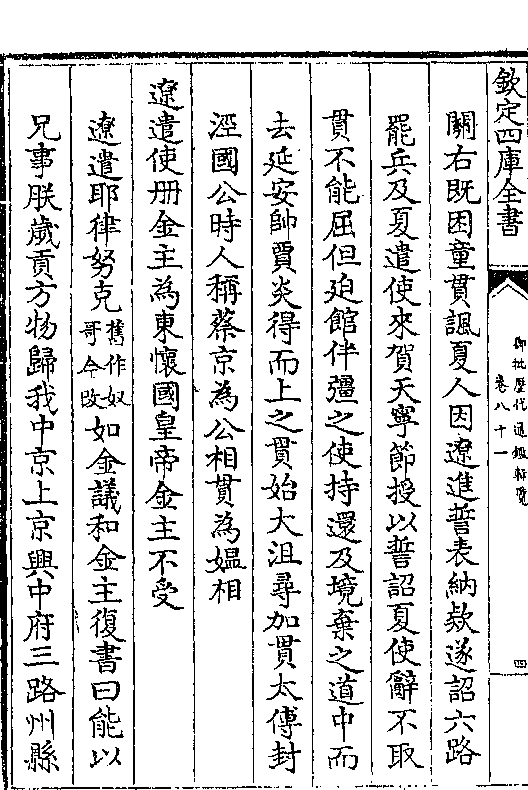 欽定四庫全書
御批歷代通鑑輯覽
卷八十一
四
關右既困童貫諷夏人因遼進誓表納欵遂詔六路
罷兵及夏遣使來賀天寧節授以誓詔夏使辭不取
貫不能屈但廹館伴彊之使持還及境棄之道中而
去延安帥賈炎得而上之貫始大沮尋加貫太傅封
涇國公時人稱蔡京為公相貫為媪相
遼遣使册金主為東懷國皇帝金主不受
遼遣耶律努克舊作奴哥今改如金議和金主復書曰能以
兄事朕歲貢方物歸我中京上京興中府三路州縣